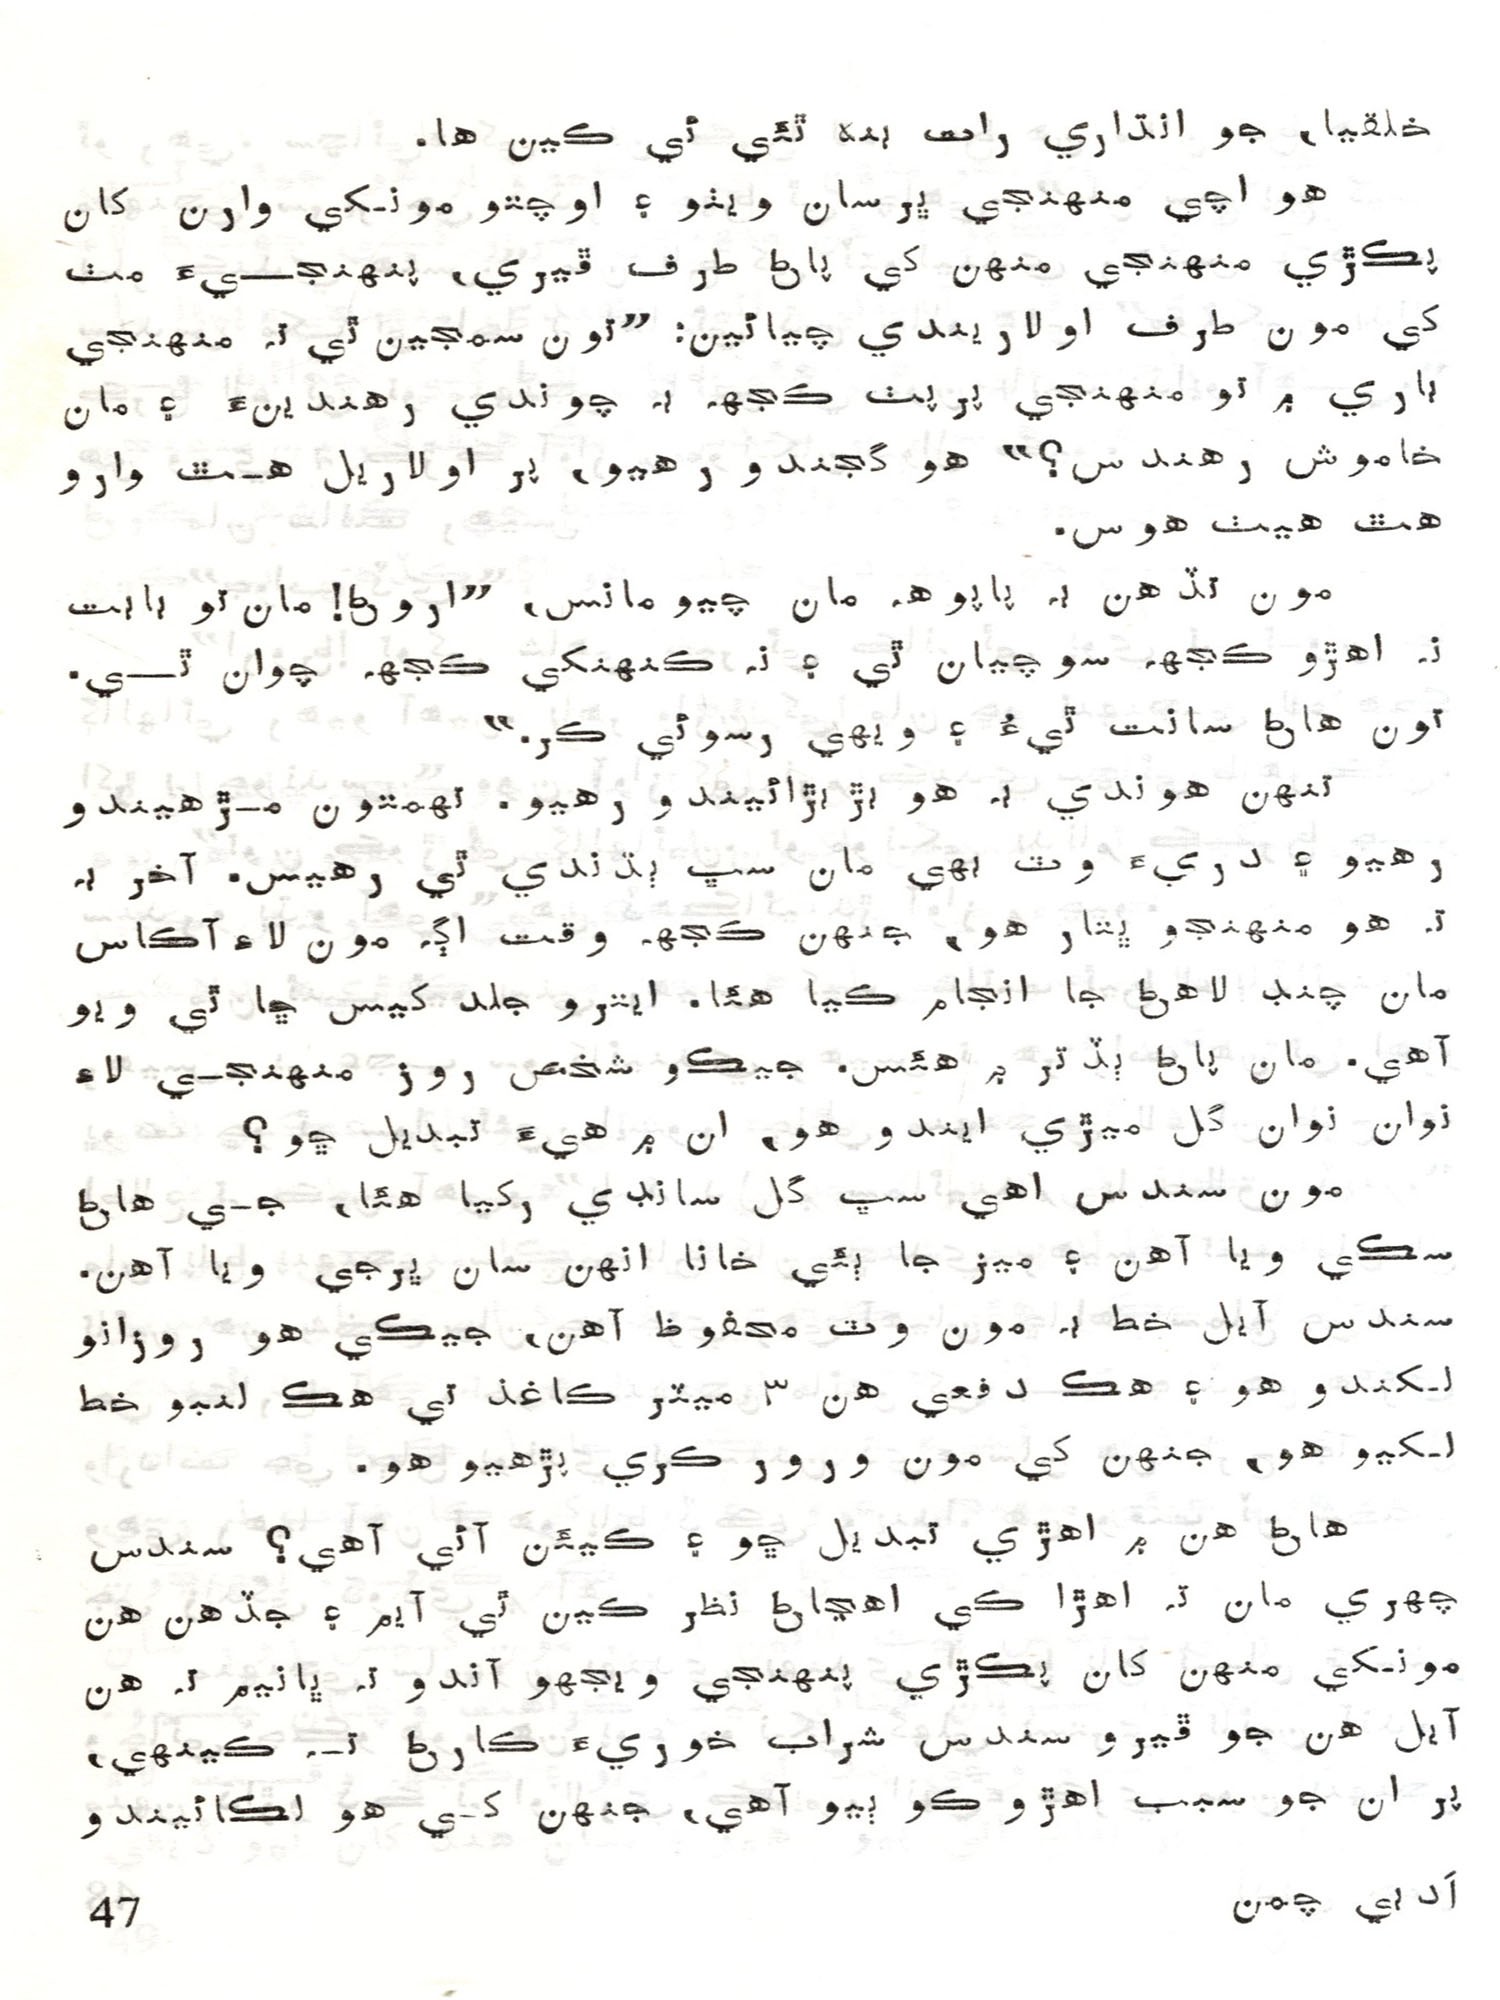 خلقيا، جو انڌاري رات بنه ٿئي ئي ڪين ها.
هو اچي منهنجي ڀرسان ويٺو ۽ اوچتو مونکي وارن کان
پڪڙي منهنجي منهن کي پاڻ طرف ڦيري، پنهنجيءَ مٺ
کي مون طرف اولاريندي چيائين: ”تون سمجهين ٿي ته منهنجي
باري ۾ تو منهنجي پرپٺ ڪجهه به چوندي رهندينءَ ۽ مان
خاموش رهندس؟“ هو گجندو رهيو، پر اولاريل هٿ وارو
هٿ هيٺ هوس.
مون تڏهن به پاٻوهه مان چيومانس، ”اروڻ! مان تو بابت
نه اهڙو ڪجهه سوچيان ٿي ۽ نه ڪنهنکي ڪجهه چوان ٿي.
تون هاڻ سانت ٿيءُ ۽ ويهي رسوئي ڪر.“
تنهن هوندي به هو بڙ بڙائيندو رهيو. تهمتون مڙهيندو
رهيو ۽ دريءَ وٽ بهي مان سڀ ٻڌندي ٿي رهيس. آخر به
ته هو منهنجو ڀتار هو، جنهن ڪجهه وقت اڳه مون لاءِ آڪاس
مان چنڊ لاهڻ جا انجام ڪيا هئا. ايترو جلد کيس ڇا ٿي ويو
آهي. مان پاڻ ٻڏتر ۾ هئس. جيڪو شخص روز منهنجي لاءِ
نوان نوان گل ميڙي ايندو هو، ان ۾ هيءَ تبديل ڇو؟
مون سندس اهي سڀ گل سانڍي رکيا هئا، جي هاڻ
سڪي ويا آهن ۽ ميز جا ٻئي خانا انهن سان ڀرجي ويا آهن.
سندس آيل خط به مون وٽ محفوظ آهن، جيڪي هو روزانو
لکندو هو ۽ هڪ دفعي هن ۳ ميٽر ڪاغذ تي هڪ لنبو خط
لکيو هو، جنهن کي مون ورور ڪري پڙهيو هو.
هاڻ هن ۾ اهڙي تبديل ڇو ۽ ڪيئن آئي آهي؟ سندس
چهري مان ته اهڙا ڪي اهڃاڻ نظر ڪين ٿي آيم ۽ جڏهن هن
مونکي منهن کان پڪڙي پنهنجي ويجهو آندو ته ڀانيم ته هن
آيل هن جو ڦيرو سندس شراب خوريءَ ڪارڻ ته ڪينهي،
پر ان جو سبب اهڙو ڪو ٻيو آهي، جنهن کي هو لڪائيندو
اَدبي چمن
47